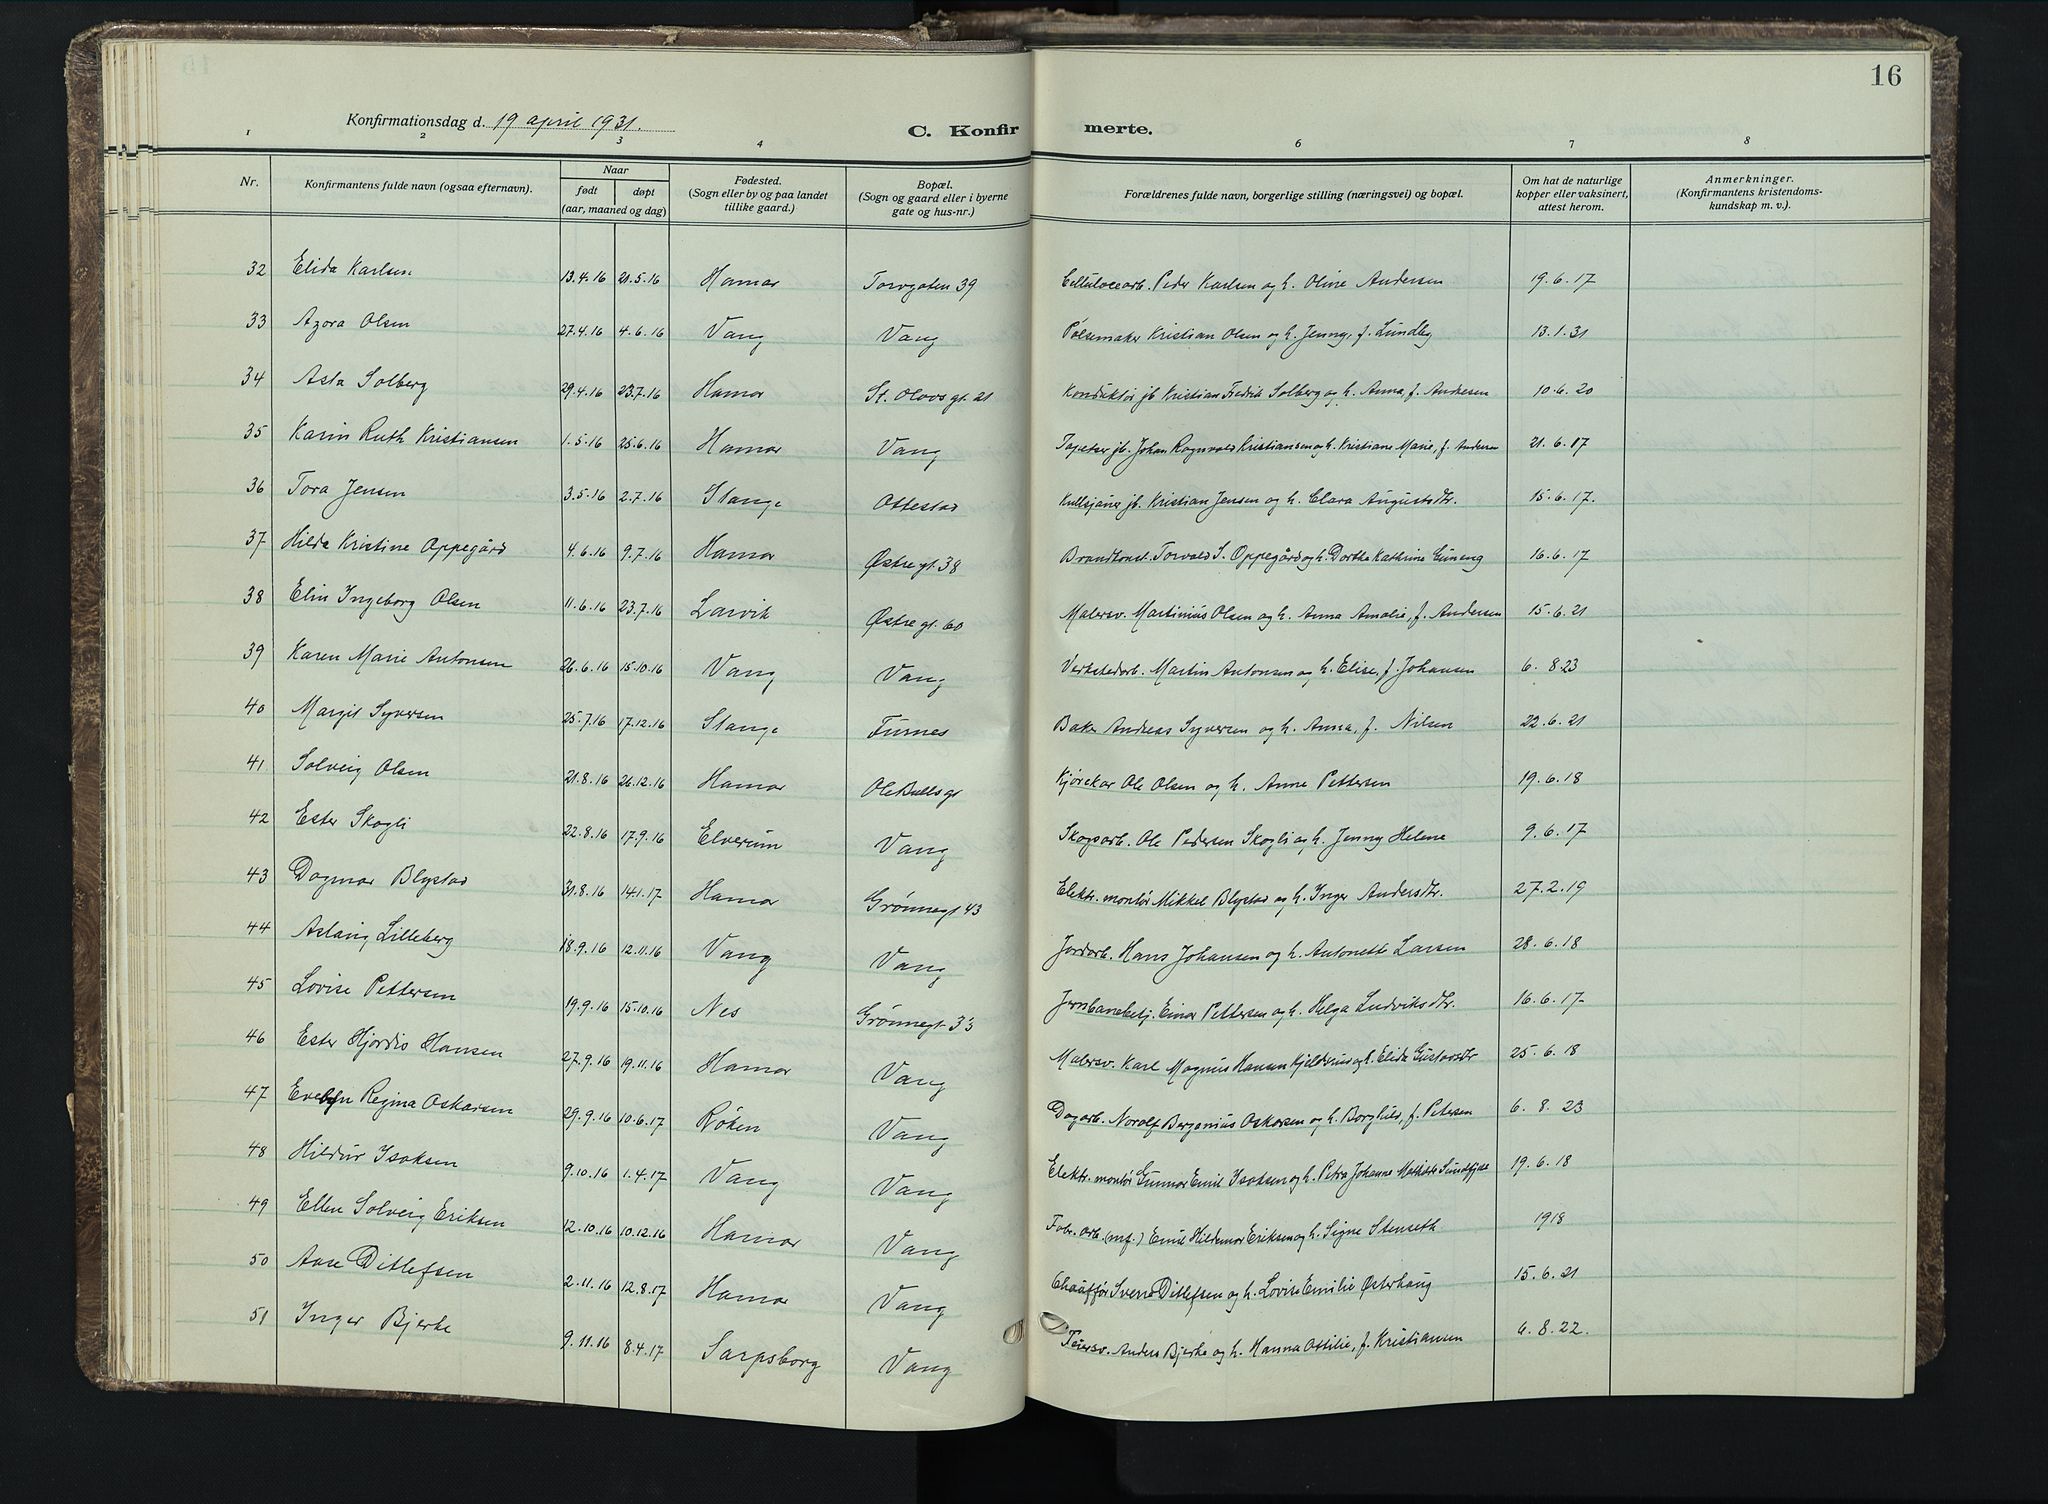 16
Konfirmationsdag d. 19 april 1931.
C. Konfirmerte.
1 2 3 4 6 7 8
Nr. Konfirmantens fulde navn (ogsaa efternavn). Naar født døpt (aar, maaned og dag) Fødested. (Sogn eller by og paa landet tillike gaard.) Bopæl. (Sogn og gaard eller i byerne gate og hus-nr.) Forældrenes fulde navn, borgerlige stilling (næringsvei) og bopæl. Om hat de naturlige kopper eller vaksinert, attest herom. Anmerkninger. (Konfirmantens kristendoms-kundskap m. v.).
32 Elida Karlsen 13.4.16 21.5.16 Hamar Torvgaten 39 Cellulosearb. Peder Karlsen og h. Oline Andersen 19.6.17
33 Azora Olsen 27.4.16 4.6.16 Vang Vang Pølsemaker Kristian Olsen og h. Jenny, f. Lundby 13.1.31
34 Asta Solberg 29.4.16 23.7.16 Hamar St. Olavs gt. 21 Konduktør jb Kristian Fredrik Solberg og h. Anna, f. Andresen 10.6.20
35 Karin Ruth Kristiansen 1.5.16 25.6.16 Hamar Vang Tapetser jb. Johan Ragnvald Kristiansen og h. Kristiane Marie, f. Andersen 21.6.17
36 Tora Jensen 3.5.16 2.7.16 Stange Ottestad Kullsjauer jb. Kristian Jensen og h. Clara Augustsdtr. 15.6.17.
37 Hilda Kristine Oppegård 4.6.16 9.7.16 Hamar Østregt. 38 Brandkonst. Torvald S. Oppegård og h. Dorthe Kathrine 16.6.17
38 Elin Ingeborg Olsen 11.6.16 23.7.16 Larvik Østregt. 60 Malersv. Martinius Olsen og h. Anna Amalie, f. Andersen 15.6.21
39 Karen Marie Antonsen 26.6.16 15.10.16 Vang Vang Verkstedarb. Martin Antonsen og h. Elise, f. Johansen 6.8.23
40 Margit Syversen 25.7.16 17.12.16 Stange Furnes Baker Andreas Syversen og h. Anna, f. Nilsen 22.6.21
41 Solveig Olsen 21.8.16 26.12.16 Hamar Ole Bulls gt Kjørekar Ole Olsen og h. Anne Pettersen 19.6.18
42 Ester Skogli 22.8.16 17.9.16 Elverum Vang Skogsarb. Ole Pedersen Skogli og h. Jenny Helene 9.6.17
43 Dagmar Blystad 31.8.16 14.1.17 Hamar Grønnegt 43 Elektr. montør Mikkel Blystad og h. Inger Andersdtr. 27.2.19
44 Aslaug Lilleberg 18.9.16 12.11.16 Vang Vang Jordarb. Hans Johansen og h. Antonette Larsen 28.6.18
45 Lovise Pettersen 19.9.16 15.10.16 Nes Grønnegt. 33 Jernbanebetj. Einar Pettersen og h. Helga Ludviksdtr. 16.6.17
46 Ester Hjørdis Hansen 27.9.16 19.11.16 Hamar Vang Malersv. Karl Magnus Hansen og h. Elida Gustavsdtr 25.6.18
47 Evelyn Regina Oskarsen 29.9.16 10.6.17 Røken Vang Dagarb. Norolf Oskarsen og h. Borghild, f. Petersen 6.8.23
48 Hildur Isaksen 9.10.16 1.4.17 Vang Vang Elektr. montør Gunnar Emil Isaksen og h. Petra Johanne Mathilde 19.6.18
49 Ellen Solveig Eriksen 12.10.16 10.12.16 Hamar Vang Fabr. arb. (mf.) Emil Hildemar Eriksen og h. Signe Stenseth 1918
50 Aase Ditlefsen 2.11.16 12.8.17 Hamar Vang Chauffør Sverre Ditlefsen og h. Lovise Emilie Østerhaug 15.6.21
51 Inger Bjerke 9.11.16 8.4.17 Sarpsborg Vang Anders Bjerke og h. Hanna Ottilie, f. Kristiansen 6.8.22.